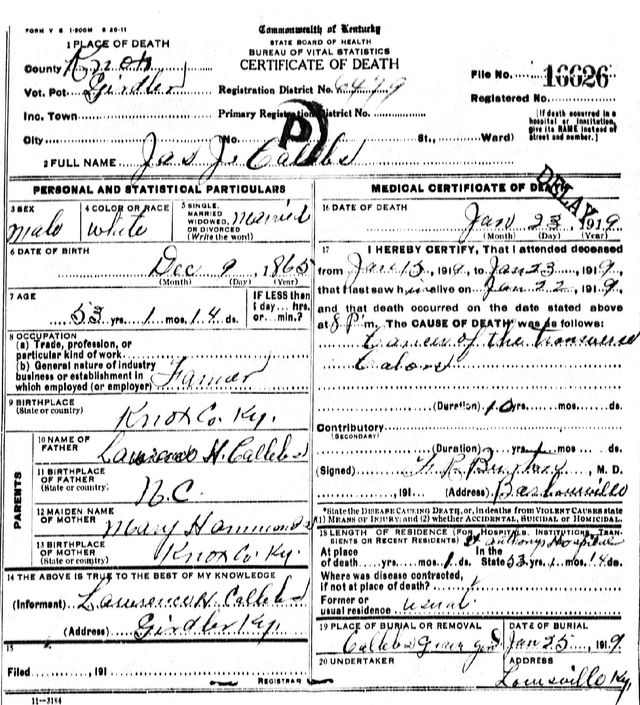 FORM V S 1-500M 6 20-11
Commonwealth of Kentucky
STATE BOARD OF HEALTH
BUREAU OF VITAL STATISTICS
CERTIFICATE OF DEATH
1 PLACE OF DEATH
County Knox
Vot. Pct. Girdler
Inc. Town
City
Registration District No. 479
Primary Registration District No.
No. St., Ward)
File No. 16626
Registered No.
[If death occurred in a hospital or institution, give its NAME instead of street and number.]
P
2 FULL NAME Jas J. Callebs
DELAY
PERSONAL AND STATISTICAL PARTICULARS
3 SEX Male
4 COLOR OR RACE White
5 SINGLE, MARRIED WIDOWED, OR DIVORCED (Write the word) Married
6 DATE OF BIRTH Dec 9, 1865
(Month) (Day) (Year)
7 AGE 53 yrs. 1 mos. 14 ds.
IF LESS than 1 day... hrs. or... min.?
8 OCCUPATION
(a) Trade, profession, or particular kind of work
(b) General nature of industry business or establishment in which employed (or employer) Farmer
9 BIRTHPLACE (State or country) Knox Co. Ky.
PARENTS
10 NAME OF FATHER Lawrence H. Callebs
11 BIRTHPLACE OF FATHER (State or country) N.C.
12 MAIDEN NAME OF MOTHER Mary Hammonds
13 BIRTHPLACE OF MOTHER (State or country) Knox Co. Ky.
14 THE ABOVE IS TRUE TO THE BEST OF MY KNOWLEDGE
(Informant) Lawrence H. Callebs
(Address) Girdler Ky.
15
Filed , 191
REGISTRAR
11-3184
MEDICAL CERTIFICATE OF DEATH
16 DATE OF DEATH Jan 23, 1919
(Month) (Day) (Year)
17 I HEREBY CERTIFY, That I attended deceased
from Jan 15, 1919, to Jan 23, 1919,
that I last saw him alive on Jan 22, 1919,
and that death occurred on the date stated above
at 8 P. m. The CAUSE OF DEATH* was as follows:
Cancer of the transverse
Colon
(Duration) 10 yrs. mos. ds.
Contributory
(SECONDARY)
(Duration) yrs. mos. ds.
(Signed) , M. D.
, 191 (Address)
*State the DISEASE CAUSING DEATH, or, in deaths from VIOLENT CAUSES state (1) MEANS OF INJURY; and (2) whether ACCIDENTAL, SUICIDAL or HOMICIDAL.
18 LENGTH OF RESIDENCE (FOR HOSPITALS, INSTITUTIONS, TRANSIENTS OR RECENT RESIDENTS) St Anthonys Hospital
At place of death yrs. mos. ds. In the State 53 yrs. 1 mos. 14 ds.
Where was disease contracted, if not at place of death?
Former or usual residence usual
19 PLACE OF BURIAL OR REMOVAL Callebs Grave
DATE OF BURIAL Jan 25, 1919
20 UNDERTAKER
ADDRESS Louisville Ky.